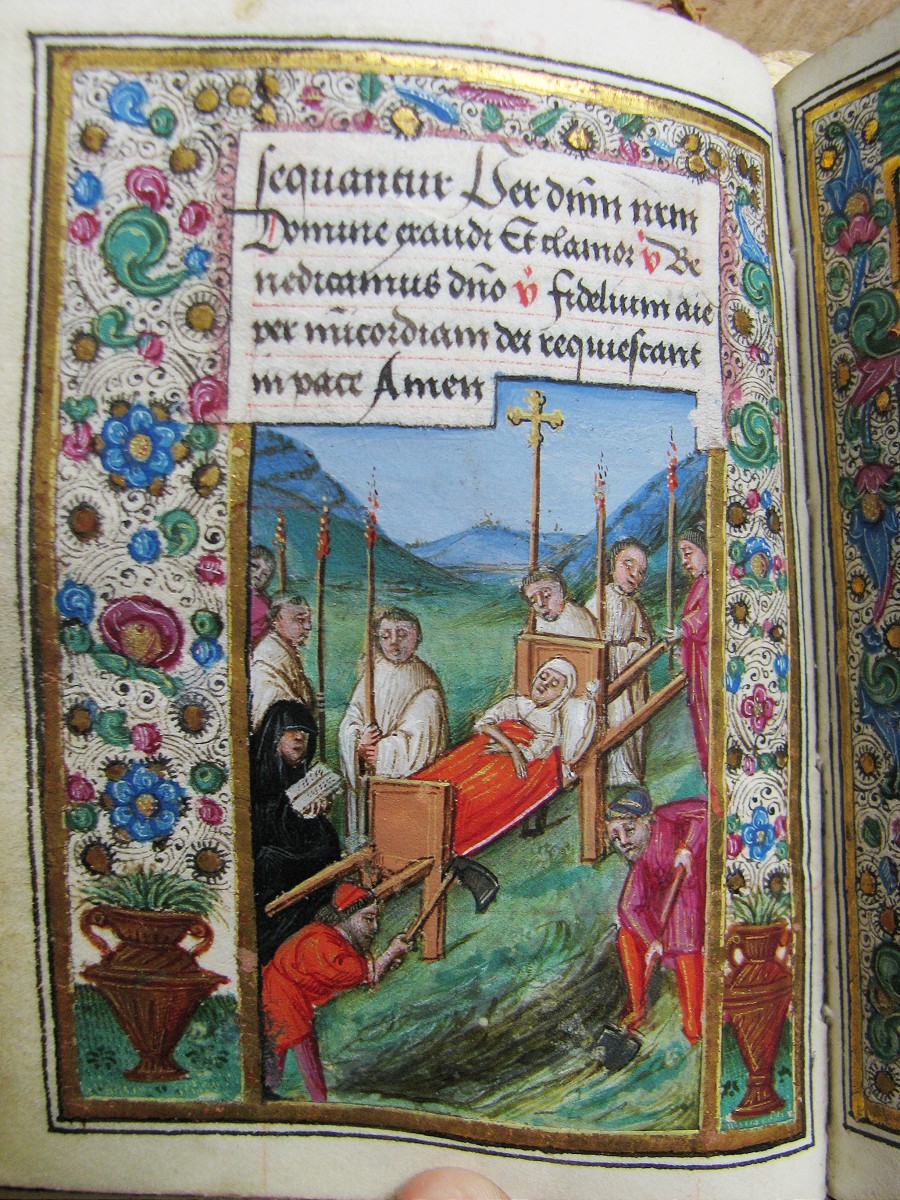 sequantur Per dn̄m nrm
Domine exaudi Et clamor v̇ Be
nedicamus dn̄o v̇ fidelium aīe
per mīcordiam dei requiescant
in pace Amen